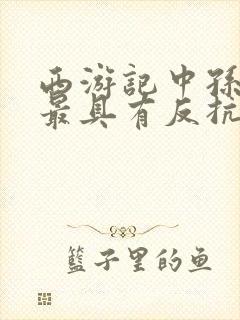 西游记中孙
最具有反抗
籃子里的鱼